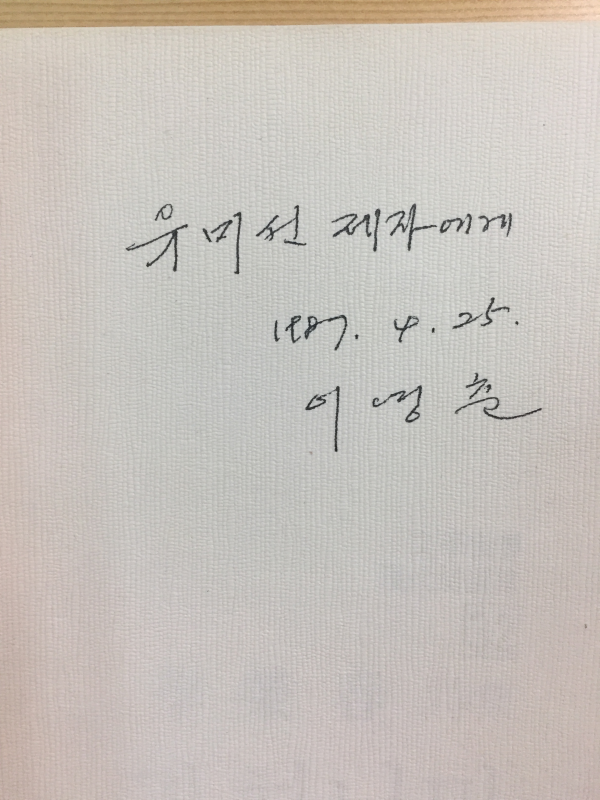 유미선 제자에게
1987. 4. 25.
이영춘